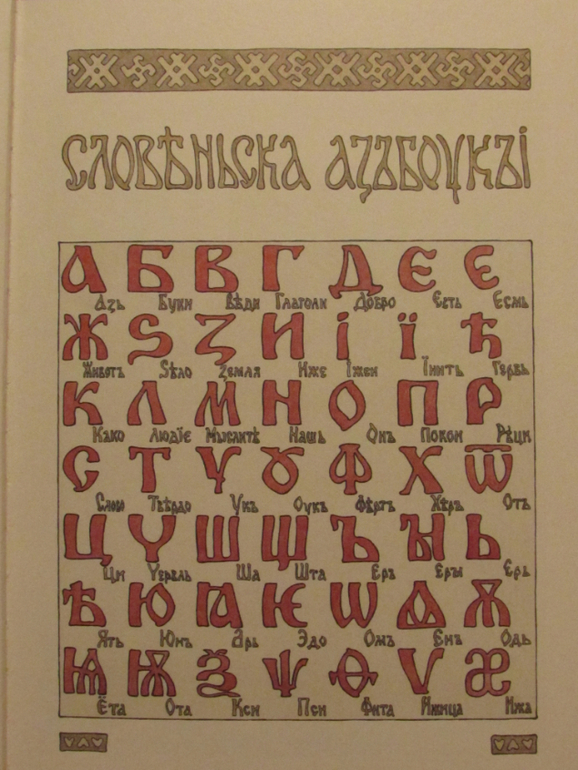 СЛОВѢНЬСКА АЗЪБОУКЪІ
А Б В Г Д Є Є
Азъ Буки Вѣди Глаголи Добро Єсть Есмь
Ж Ѕ З И і ї Ћ
Животъ Ѕѣло Земля Иже Їжеи Їнить Гервь
К Л М Н О П Р
Како Людіє Мыслитѣ Нашь Онъ Покои Рѣци
С Т Ү Ȣ Ф Х Ѿ
Слово Твѣрдо Укъ Оукъ Фѣртъ Хѣръ Отъ
Ц Ч Ш Щ Ъ ЪІ Ь
Ци Червль Ша Шта Еръ Еры Ерь
Ѣ Ю Ꙗ Ѥ Ѡ Ѧ Ѫ
Ять Юнъ Арь Эдо Омъ Енъ Одь
Ѩ Ѭ Ѯ Ѱ Ѳ Ѵ Æ
Ёта Ота Кси Пси Фита Ижица Ижа